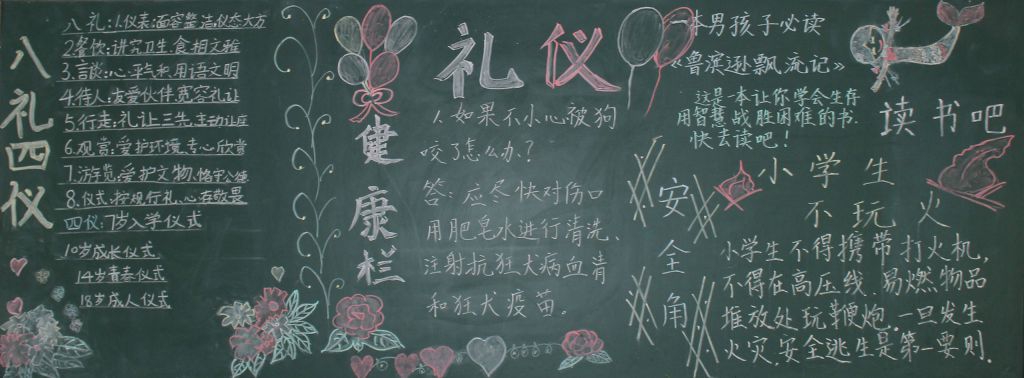 八礼四仪
八礼:1.仪表:面容整洁,仪态大方
2.餐饮:讲究卫生,食相文雅
3.言談:心平气和,用语文明
4.待人:友爱伙伴,宽容礼让
5.行走:礼让三先,主动让座
6.观赏:爱护环境,专心欣赏
7.游览:爱护文物,恪守公德
8.仪式:按规行礼,心存敬畏
四仪:7岁入学仪式
10岁成长仪式
14岁青春仪式
18岁成人仪式
礼仪
健康栏
1.如果不小心被狗
咬了怎么办?
答:应尽快对伤口
用肥皂水进行清洗、
注射抗狂犬病血清
和狂犬疫苗。
一本男孩子必读
《鲁滨逊飘流记》
这是一本让你学会生存
用智慧战胜困难的书.
快去读吧!
读书吧
安全角
小学生
不玩火
小学生不得携带打火机,
不得在高压线、易燃物品
堆放处玩鞭炮.一旦发生
火灾,安全逃生是第一要则.